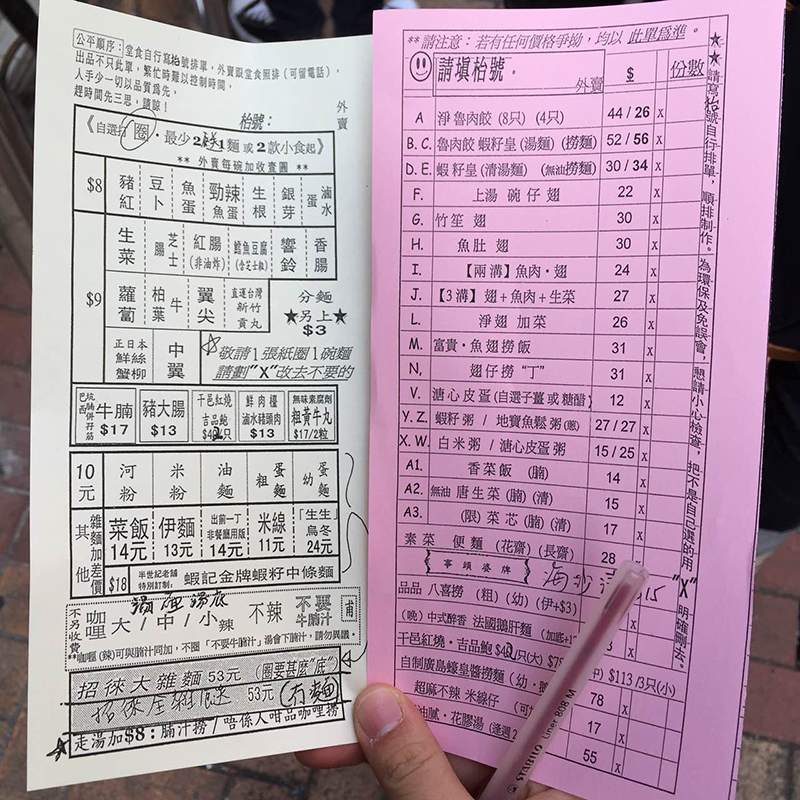 公平順序：堂食自行寫枱號排單，外賣跟堂食照排（可留電話），
出品不只此單，繁忙時難以控制時間，
人手少一切以品質為先，
趕時間先三思，請諒！
枱號： 外賣
《自選打圈，最少 1麵 或 2款小食起》
** 外賣每碗加收壹圓 **
$8 豬紅 豆卜 魚蛋 勁辣魚蛋 生根 銀芽 滷水蛋
生菜 芝士腸 紅腸(非油炸) 鱈魚豆腐(含芝士粒) 響鈴 香腸
$9 蘿蔔 牛柏葉 翼尖 直運台灣新竹貢丸 分麵★另上★$3
正日本鮮絲蟹柳 中翼 敬請1張紙圈1碗麵
請劃"X"改去不要的
巴西坑腩併孖筋牛腩$17 豬大腸$13 干邑紅燒吉品鮑 鮮肉檯滷水豬頭肉$13 無味素腐劑粗黃牛丸$17/2粒
10元 河粉 米粉 油麵 粗蛋麵 幼蛋麵
其他 雜麵加差價 菜飯14元 伊麵13元 出前一丁非餐廳用版14元 米線11元 「生生」烏冬24元
$18 半世紀老舖特別訂制： 蝦記金牌蝦籽中條麵
不另收費 咖喱 大/中/小辣 不辣 不要牛腩汁 甫
**咖喱(辣)可與腩汁同加，不圈「不要牛腩汁」湯會下腩汁，請勿異議。
招徠大雜麵 53元 (圈要甚麼"底")
53元
走湯加$8：腩汁撈／唔係人咁品咖哩撈
**請注意：若有任何價格爭拗，均以 此單為準。
請填枱號． 外賣 $ 份數
A 淨魯肉餃 (8只) (4只) 44 / 26 x
B. C. 魯肉餃 蝦籽皇 (湯麵) (撈麵) 52 / 56 x
D. E. 蝦籽皇 (清湯麵) (無油撈麵) 30 / 34 x
F. 上湯 碗仔 翅 22 x
G. 竹笙 翅 30 x
H. 魚肚 翅 30 x
I. 【兩溝】魚肉・翅 24 x
J. 【3溝】翅＋魚肉＋生菜 27 x
L. 淨翅 加菜 26 x
M. 富貴・魚翅撈飯 31 x
N, 翅仔撈 "丁" 31 x
V. 溏心皮蛋 (自選子薑 或 糖醋) 12 x
Y. Z. 蝦籽粥 / 地寶魚鬆粥(蔥) 27 / 27 x
X. W. 白米粥 / 溏心皮蛋粥 15 / 25 x
A1. 香菜飯 (腩) 14 x
A2. 無油 唐生菜 (腩) (清) 15 x
A3. (限) 菜芯 (腩) (清) 17 x
素菜 便麵 (花齋) (長齋) 28
事頭婆牌
15
品品 八喜撈 (粗) (幼) (伊+$3)
(晚) 中式醉香 法國鵝肝麵
干邑紅燒・吉品鮑 $113 /3只(小)
自制廣島蠔皇醬撈麵 78 x
超麻不辣 米線仔 17 x
花膠湯 55 x
★★請寫枱號自行排單，順排制作。為環保及免誤會，懇請小心檢查，把不是自己選的用"X"明確刪去。
STABILO Liner 808 M